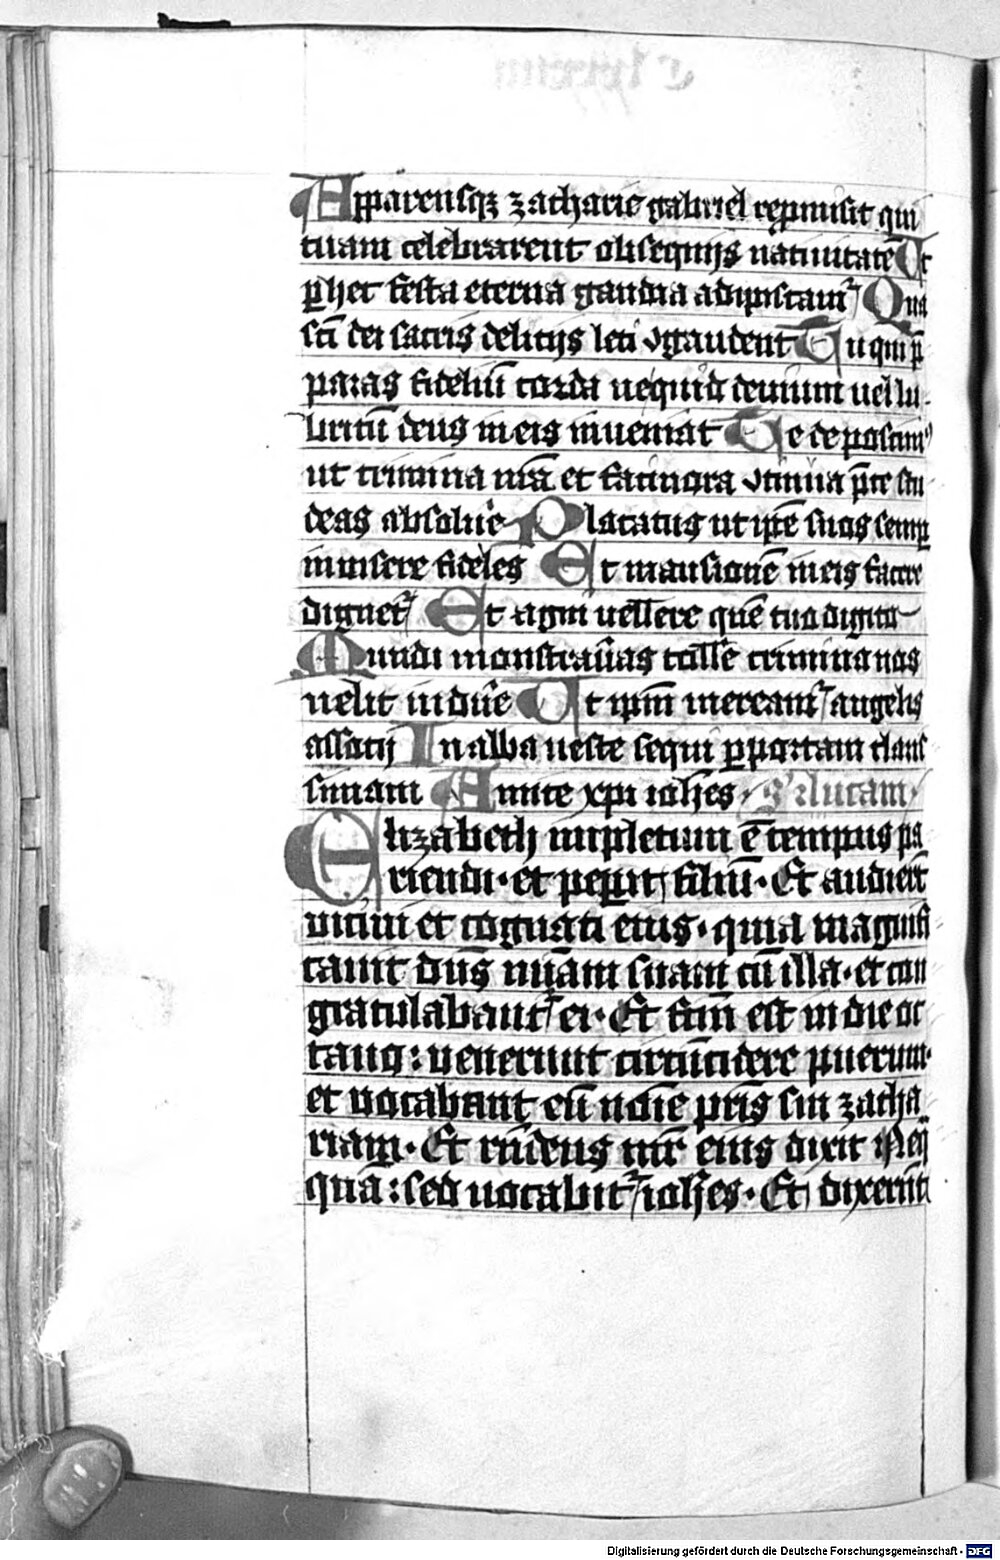 Apparensq; zacharie gabriel repmisit qui
tuam celebrarent obsequijs natiuitatē Ut
ꝑ hec festa eterna gaudia adipiscamꝛ Qua
sc̄i dei sacris delicijs leti ꝯgaudent Tu qui p̄
paras fideliū corda ne quid deuium uel lu
bricū deus in eis inueniat Te deposcimꝰ
ut crimina nr̄a et facinora ꝯtinua p̄ce stu
deas absolue Placatus ut ip̄e suos semp
inuisere fideles Et mansionē in eis facere
dignetꝛ Et agni uellere quē tuo digito
Mundi monstrauas tollē crimina nos
uelit indūe Ut ip̄m mereamꝛ angelis
associj In alba ueste sequi ꝑ portam claris
simam Amice xp̄i ioh̄es · S' lucam
Elizabeth impletum ē tempus pa
riendi · et peperit filiū · Et audierūt
uicini et cognati eius · quia magnifi
cauit dn̄s mīam suam cū illa · et con
gratulabantꝛ ei · Et fcm̄ est in die oc
tauo : uenerunt circūcidere puerum ·
et uocabant eū noīe pr̄is sui zacha
riam · Et rn̄dens mr̄ eius dixit Neq̄
quā : sed uocabitꝛ ioh̄es · Et dixerūt
Digitalisierung gefördert durch die Deutsche Forschungsgemeinschaft - DFG